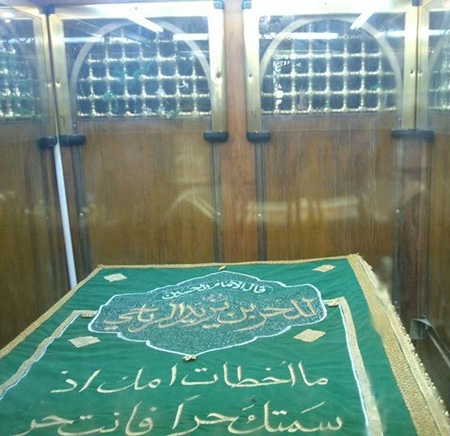 قال الامام الحسين
للحر بن يزيد الرياحي
ما اخطات امك اذ
سمتك حراً فانت حر